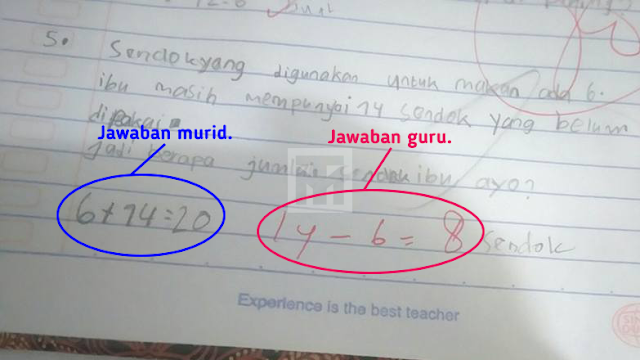 5. Sendok yang digunakan untuk makan ada 6.
ibu masih mempunyai 14 sendok yang belum
dipakai.
Jawaban murid.
Jawaban guru.
Jadi berapa jumlah sendok ibu ayo?
6+14=20
14 - 6 = 8 sendok
Experience is the best teacher